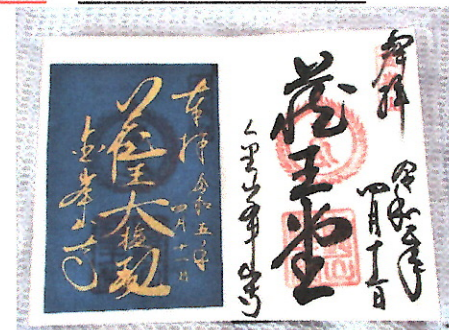 奉拝
令和五年
四月十一日
蔵王堂
金峯山寺
奉拝
令和五年
四月十一日
蔵王大権現
金峯山寺